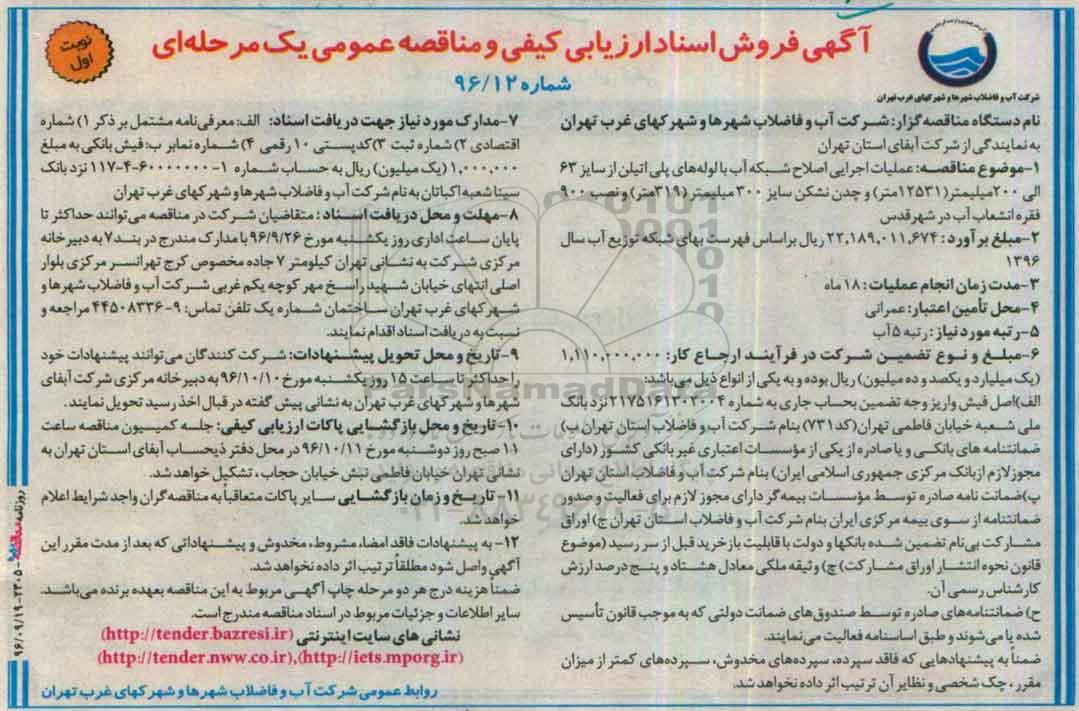 نوبت
اول
آگهی فروش اسناد ارزیابی کیفی و مناقصه عمومی یک مرحله‌ای
شماره ۹۶/۱۲
شرکت آب و فاضلاب شهرها و شهرکهای غرب تهران
نام دستگاه مناقصه گزار: شرکت آب و فاضلاب شهرها و شهرکهای غرب تهران
به نمایندگی از شرکت آبفای استان تهران
۱-موضوع مناقصه: عملیات اجرایی اصلاح شبکه آب با لوله‌های پلی اتیلن از سایز ۶۳
الی ۲۰۰میلیمتر(۱۲۵۳۱متر) و چدن نشکن سایز ۳۰۰ میلیمتر (۳۱۹متر) و نصب ۹۰۰
فقره انشعاب آب در شهرقدس
۲-مبلغ برآورد: ۲۲,۱۸۹,۰۱۱,۶۷۴ ریال براساس فهرست بهای شبکه توزیع آب سال
۱۳۹۶
۳-مدت زمان انجام عملیات: ۱۸ ماه
۴-محل تأمین اعتبار: عمرانی
۵-رتبه مورد نیاز: رتبه ۵ آب
۶-مبلغ و نوع تضمین شرکت در فرآیند ارجاع کار: ۱,۱۱۰,۰۰۰,۰۰۰
(یک میلیارد و یکصد و ده میلیون) ریال بوده و به یکی از انواع ذیل می‌باشد:
الف)اصل فیش واریز وجه تضمین بحساب جاری به شماره ۲۱۷۵۱۶۱۳۰۲۰۰۴ نزد بانک
ملی شعبه خیابان فاطمی تهران(کد۷۳۱) بنام شرکت آب و فاضلاب استان تهران ب)
ضمانتنامه های بانکی و یا صادره از یکی از مؤسسات اعتباری غیر بانکی کشور (دارای
مجوز لازم ازبانک مرکزی جمهوری اسلامی ایران) بنام شرکت آب و فاضلاب استان تهران
پ)ضمانت نامه صادره توسط مؤسسات بیمه گر دارای مجوز لازم برای فعالیت و صدور
ضمانتنامه از سوی بیمه مرکزی ایران بنام شرکت آب و فاضلاب استان تهران ج) اوراق
مشارکت بی‌نام تضمین شده بانکها و دولت با قابلیت بازخرید قبل از سر رسید (موضوع
قانون نحوه انتشار اوراق مشارکت) چ) وثیقه ملکی معادل هشتاد و پنج درصد ارزش
کارشناس رسمی آن.
ح) ضمانتنامه‌های صادره توسط صندوق‌های ضمانت دولتی که به موجب قانون تأسیس
شده یا می‌شوند و طبق اساسنامه فعالیت می‌نمایند.
ضمناً به پیشنهادهایی که فاقد سپرده، سپرده‌های مخدوش، سپرده‌های کمتر از میزان
مقرر، چک شخصی و نظایر آن ترتیب اثر داده نخواهد شد.
۷-مدارک مورد نیاز جهت دریافت اسناد: الف: معرفی‌نامه مشتمل بر ذکر ۱) شماره
اقتصادی ۲) شماره ثبت ۳)کدپستی ۱۰ رقمی ۴) شماره نمابر ب: فیش بانکی به مبلغ
۱,۰۰۰,۰۰۰ (یک میلیون) ریال به حساب شماره ۱-۶۰۰۰۰۰۰۰-۴-۱۱۷ نزد بانک
سینا شعبه اکباتان به نام شرکت آب و فاضلاب شهرها و شهرکهای غرب تهران
۸-مهلت و محل دریافت اسناد: متقاضیان شرکت در مناقصه می‌توانند حداکثر تا
پایان ساعت اداری روز یکشنبه مورخ ۹۶/۹/۲۶ با مدارک مندرج در بند۷ به دبیرخانه
مرکزی شرکت به نشانی تهران کیلومتر ۷ جاده مخصوص کرج تهرانسر مرکزی بلوار
اصلی انتهای خیابان شهید راسخ مهر کوچه یکم غربی شرکت آب و فاضلاب شهرها و
شهرکهای غرب تهران ساختمان شماره یک تلفن تماس: ۹-۴۴۵۰۸۳۳۶ مراجعه و
نسبت به دریافت اسناد اقدام نمایند.
۹-تاریخ و محل تحویل پیشنهادات: شرکت کنندگان می‌توانند پیشنهادات خود
را حداکثر تا ساعت ۱۵ روز یکشنبه مورخ ۹۶/۱۰/۱۰ به دبیرخانه مرکزی شرکت آبفای
شهرها و شهرکهای غرب تهران به نشانی پیش گفته در قبال اخذ رسید تحویل نمایند.
۱۰-تاریخ و محل بازگشایی پاکات ارزیابی کیفی: جلسه کمیسیون مناقصه ساعت
۱۱ صبح روز دوشنبه مورخ ۹۶/۱۰/۱۱ در محل دفتر ذیحساب آبفای استان تهران به
نشانی تهران خیابان فاطمی نبش خیابان حجاب، تشکیل خواهد شد.
۱۱- تاریخ و زمان بازگشایی سایر پاکات متعاقباً به مناقصه‌گران واجد شرایط اعلام
خواهد شد.
۱۲- به پیشنهادات فاقد امضاء، مشروط، مخدوش و پیشنهاداتی که بعد از مدت مقرر این
آگهی واصل شود مطلقاً ترتیب اثر داده نخواهد شد.
ضمناً هزینه درج هر دو مرحله چاپ آگهی مربوط به این مناقصه بعهده برنده می‌باشد.
سایر اطلاعات و جزئیات مربوط در اسناد مناقصه مندرج است.
نشانی های سایت اینترنتی (http://tender.bazresi.ir)
(http://tender.nww.co.ir),(http://iets.mporg.ir)
روابط عمومی شرکت آب و فاضلاب شهرها و شهرکهای غرب تهران
روزنامه مناقصه ۲۳۰۵-۹۶/۰۹/۱۹
ParsNamadData